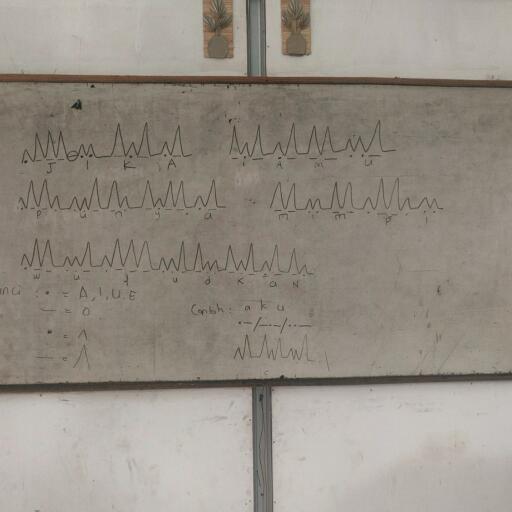 J I K A K A M U
P U N Y A M I M P I
W U J U D K A N
nci : • = A, I, U, E
— = O
• = ʌ
— = Λ
Contoh : a k u
•—/—•—/••—